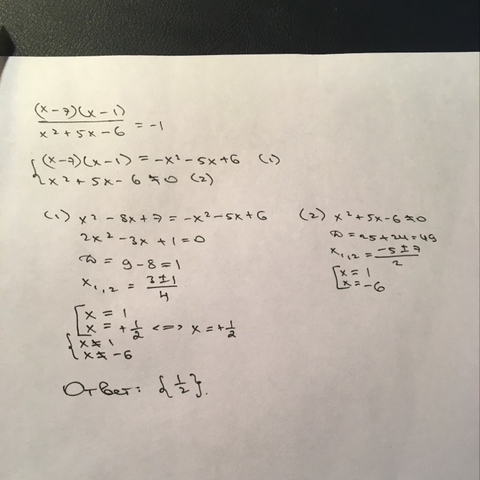 (x-7)(x-1)/(x²+5x-6) = -1
{ (x-7)(x-1) = -x²-5x+6 (1)
x²+5x-6 ≠ 0 (2)
(1) x²-8x+7 = -x²-5x+6
2x²-3x+1=0
D = 9-8=1
x₁,₂ = (3±1)/4
[ x = 1
x = +1/2 <=> x=+1/2
{ x ≠ 1
x ≠ -6
(2) x²+5x-6≠0
D=25+24=49
x₁,₂ = (-5±7)/2
[ x = 1
x = -6
Ответ: {1/2}.